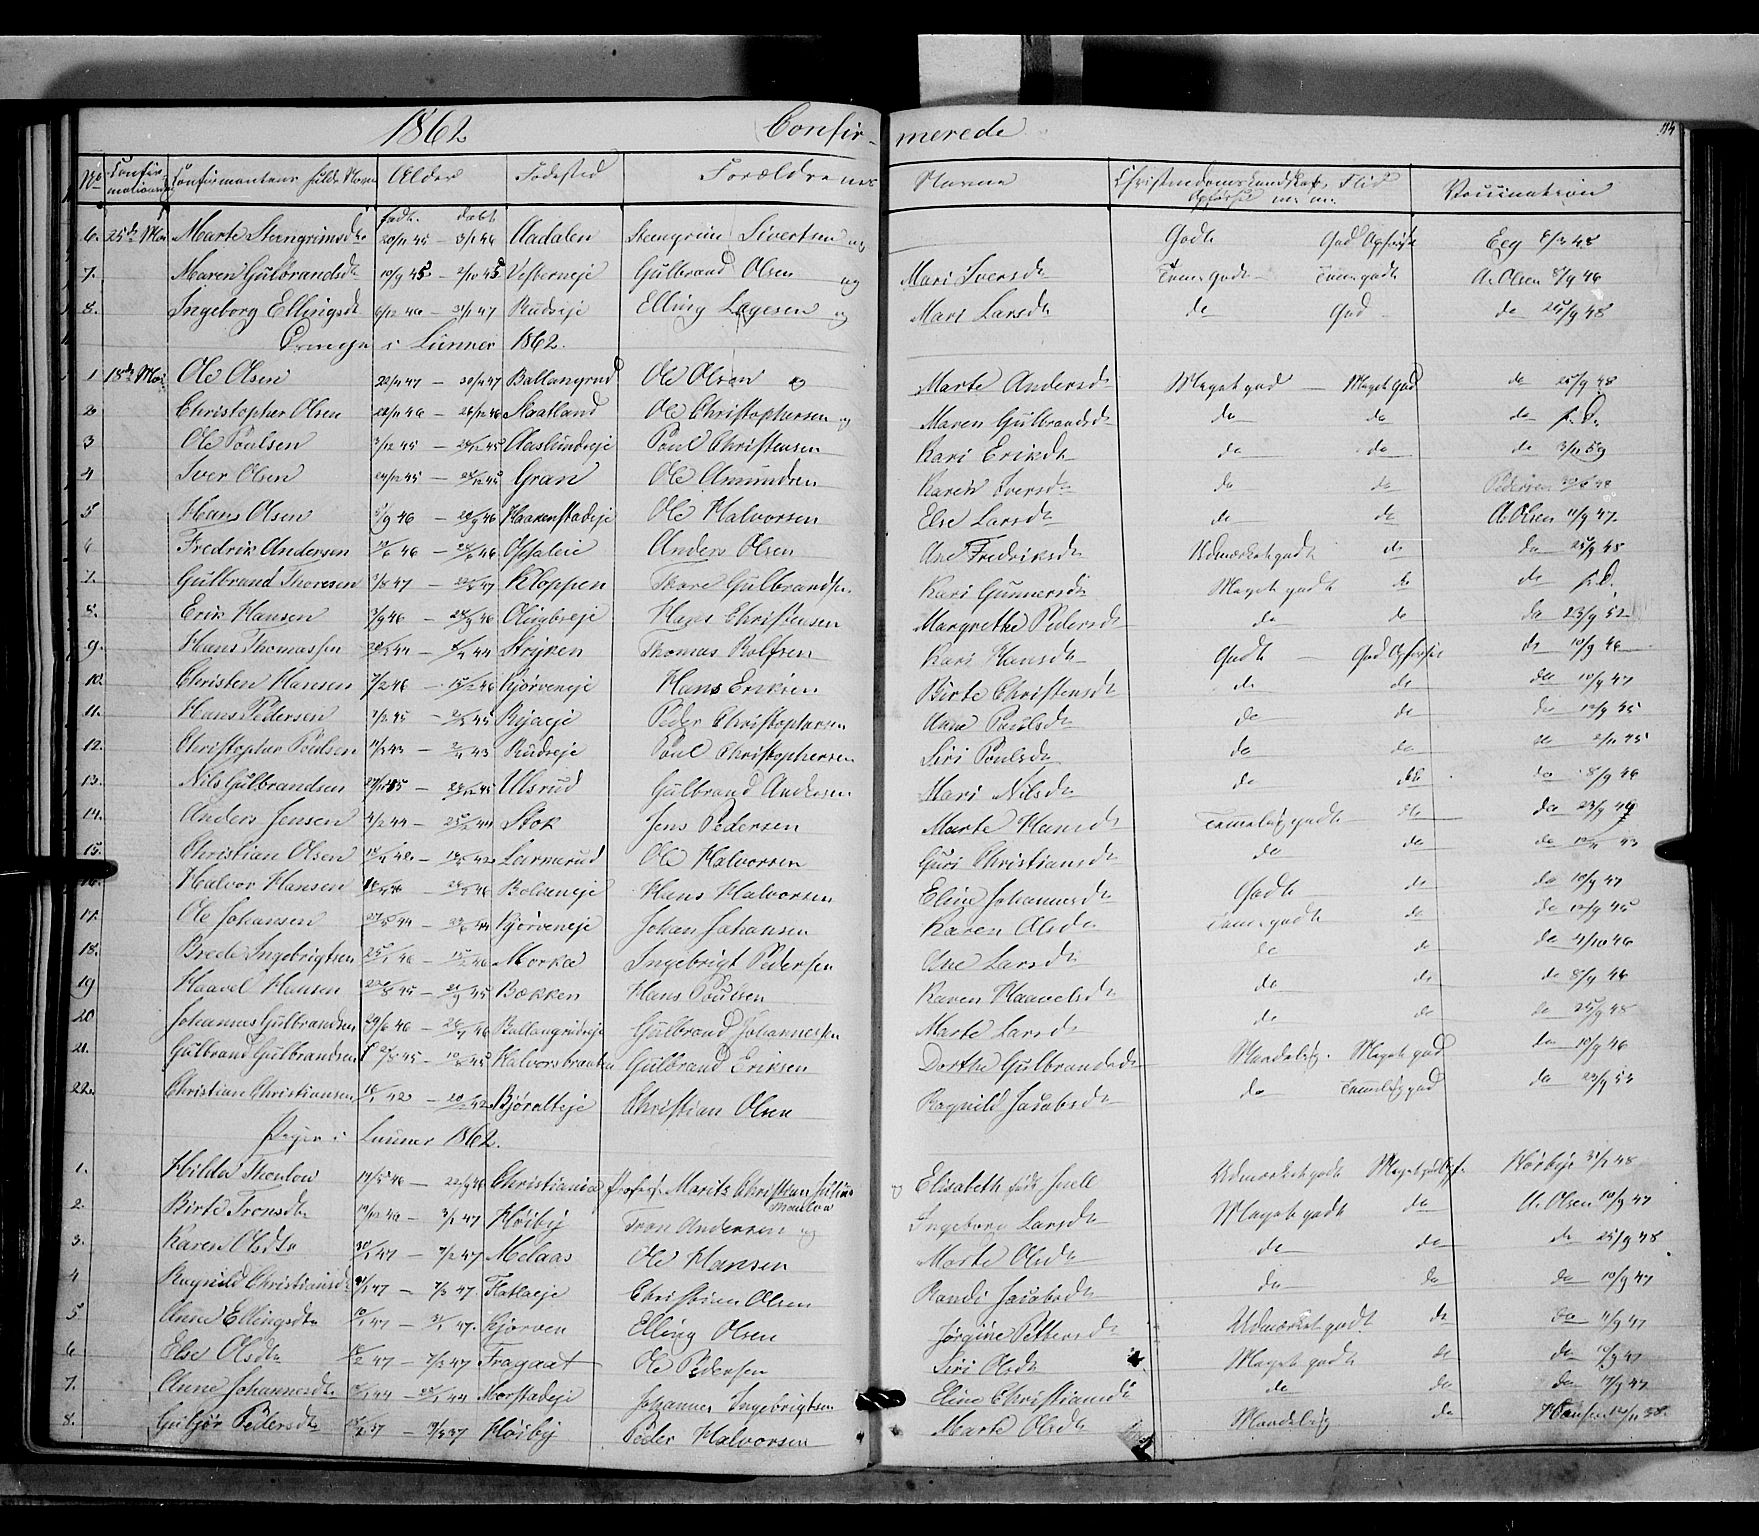 1862 Confir- merede
No Confirmationsdag Confirmantens fulde Navn Alder Fødested Forældrenes Navne Christendomskundskab, Flid Opførsel m. m. Vaccination
født. døbt
6. 25de Mai Marte Steengrimsdtr 20/11 45 — 3/1 46 Aadalen Steengrim Sivertsen og Godt God Opførsel Eeg 8/9 48
7. Maren Gulbrandsdtr 10/9 45 — 2/10 45 Vesterneje Gulbrand Olsen og Mari Iversdtr Temgodt Temgodt A. Olsen 8/9 46
8. Ingeborg Ellingsdtr 6/12 46 — 3/1 47 Rudseje Elling Lagesen og Mari Larsdtr do God do 25/9 48
Drenge i Lunner 1862.
1 18de Mai Ole Olsen 22/4 47 — 30/4 47 Ballangrud Ole Olsen og Marte Andersdtr Meget god — Meget god do 25/9 48
2 Christopher Olsen 22/11 46 — 26/12 46 Skaatland Ole Christophersen og Maren Gulbrandsdtr do do do
3 Ole Poulsen 3/12 45 — 26/12 45 Aaslundseje Poul Christensen Kari Eriksdtr do do do 3/11 59
4 Iver Olsen 24/12 45 — 26/12 45 Gran Ole Amundsen Karen Iversdtr do do Pedersen
5 Hans Olsen 5/9 46 — 20/9 46 Haarenstadeje Ole Halvorsen Else Larsdtr do do A. Olsen 11/9 47.
6 Fredrik Andersen 46 — 46 Opsaleie Anders Olsen Ane Fredriksdtr Udmærket godt do do 25/9 48
7. Gulbrand Thoresen 1/5 47 — 47 Kloppen Thore Gulbrandsen Kari Gunnersdtr Meget godt do do
8. Erik Hansen 3/9 46 — 46 Hans Christensen Margrethe Pedersdtr do do do 23/9 52
9. Hans Thomassen 44 — 44 Stryken Thomas Rolfsen Kari Hansdtr Godt — God Opførsel do 10/9 46
10. Christen Hansen 7/2 46 — 15/2 46 Kjørveneje Hans Eriksen Birte Christensdtr do do do 10/9 47
11. Hans Pedersen 7/2 45 — 45 Peder Christophersen Anne Poulsdtr do do do 12/9 45
12. Christopher Poulsen 11/3 43 — 43 Rudseje Poul Christophersen Siri Poulsdtr do do do 2/11 45
13. Nils Gulbrandsen — 45 Ulsrud Gulbrand Andersen Mari Nilsdtr do do do 8/9 46
14. Anders Jensen 4/2 44 — 25/2 44 Stok Jens Pedersen Marte Hansdtr Temmelig godt do do 23/9
15. Christian Olsen — Larmerud Ole Halvorsen Guri Christiansdtr do do do
16. Halvor Hansen 46 — 46 Boldeneje Hans Halvorsen Eline Johannesdtr Godt do do 10/9 47
17. Ole Johansen 44 — 44 Kjørveneje Johan Johansen Karen Olsdtr Temgodt do do 12/9 45
18. Brede Ingebrigtsen 25/1 46 — 15/2 46 Morka Ingebrigt Pedersen Ane Larsdtr do do do 4/10 46
19 Haavel Hansen 45 — 21/9 45 Bækken Hans Poulsen Karen Haavelsdtr do do do 8/9 46
20 Johannes Gulbrandsen 29/6 46 — 46 Ballangrudseje Gulbrand Johannessen Marte Larsdtr do do do 25/9 48
21. Gulbrand Gulbrandsen 45 — 45 Halvorsbraaten Gulbrand Eriksen Dorthe Gulbrandsdtr Maadelig. Meget god do 10/9 46
22. Christian Christiansen 42 — 42 Bjøralteje Christian Olsen Ragnild Jacobsdtr do Temmelig god do 23/9 53
Piger i Lunner 1862.
1. Hilda 14/5 46 — 46 Christiania Profess. Marits Christian Julius og Elisabeth født Udmærket godt Meget god Opf. Hørbye 48
2. Birte Tronsdtr 46 — 3/1 47 Høiby Tron Andersen og Ingeborg Larsdtr Meget godt do A. Olsen 10/9 47
3. Karen Olsdtr 47 — 7/2 47 Melaas Ole Hansen Marte Olsdtr do do do 25/9 48.
4 Ragnild Christiansdtr 47 — 7/3 47 Flatlaeje Christian Olsen Randi Jacobsdtr do do do 10/9 47
5 Anne Ellingsdtr 10/1 47 — 47. Kjørven Elling Olsen Jørgine Pettersdtr Udmærket godt do do 11/9 47
6 Else Olsdtr 47 — 7/3 47 Fragaat Ole Pedersen Siri Olsdtr Meget godt do do 10/9 47
7. Anne Johannesdtr 44 — 44 Morstadeje Johannes Ingebrigtsen Eline Christiansdtr do do do 17/9 47
8. Gubjør Pedersdtr 47 — 47 Høiby Peder Halvorsen Marte Olsdtr Maadelig do Hansen 12/11 58.